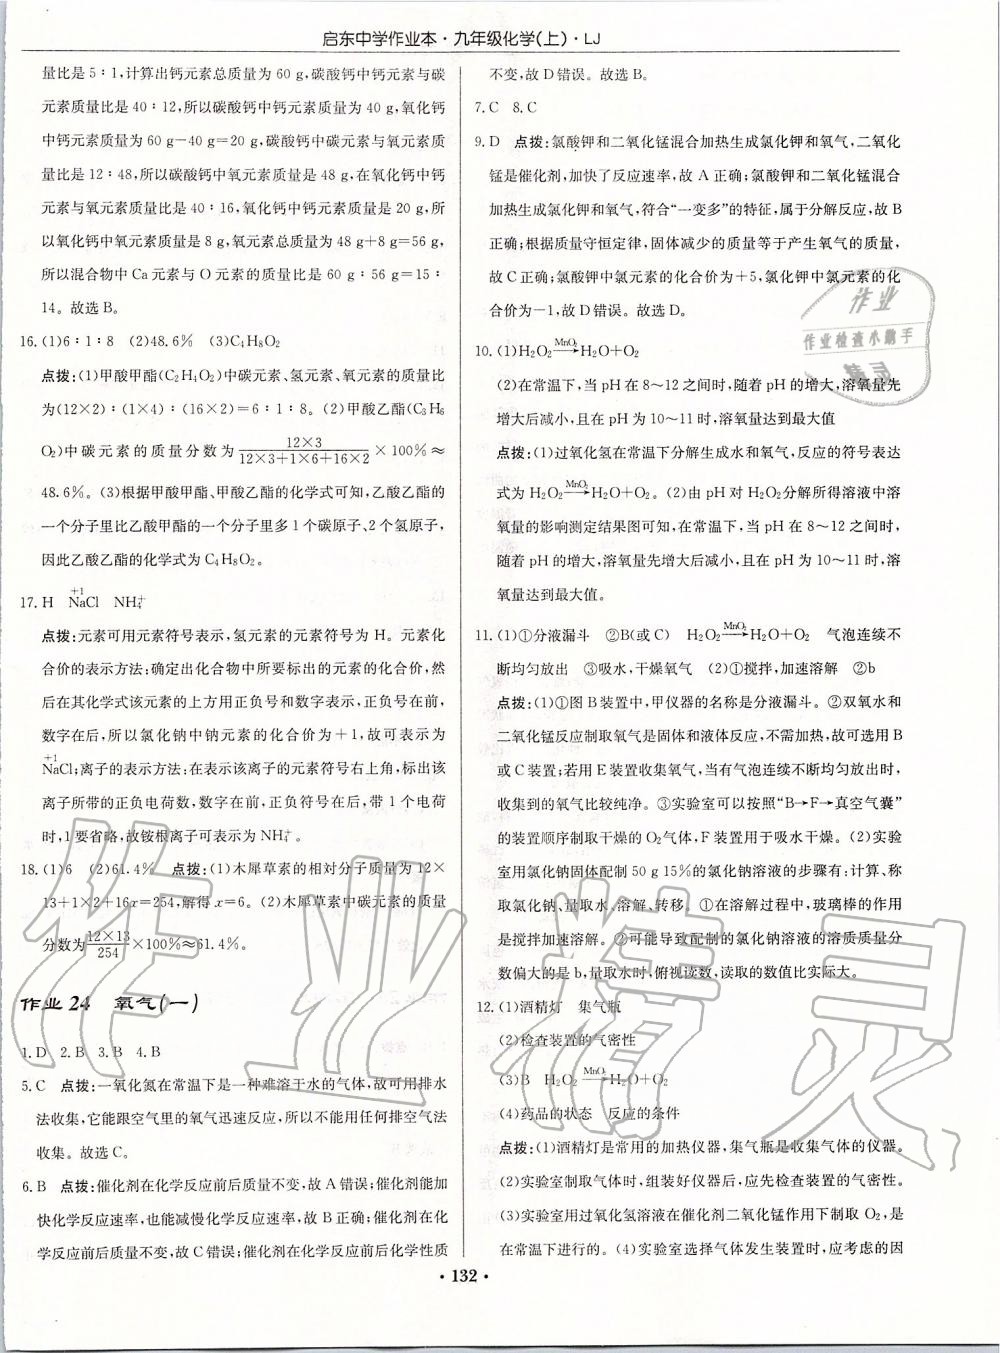 启东中学作业本·九年级化学(上)·LJ
量比是5∶1,计算出钙元素总质量为60 g,碳酸钙中钙元素与碳
元素质量比是40∶12,所以碳酸钙中钙元素质量为40 g,氧化钙
中钙元素质量为60 g－40 g＝20 g,碳酸钙中碳元素与氧元素质
量比是12∶48,所以碳酸钙中氧元素质量是48 g,在氧化钙中钙
元素与氧元素质量比是40∶16,氧化钙中钙元素质量是20 g,所
以氧化钙中氧元素质量是8 g,氧元素总质量为48 g＋8 g＝56 g,
所以混合物中Ca元素与O元素的质量比是60 g∶56 g＝15∶
14。故选B。
16. (1)6∶1∶8 (2)48.6% (3)C₄H₈O₂
点拨:(1)甲酸甲酯(C₂H₄O₂)中碳元素、氢元素、氧元素的质量比
为(12×2)∶(1×4)∶(16×2)＝6∶1∶8。(2)甲酸乙酯(C₃H₆
O₂)中碳元素的质量分数为12×3/(12×3＋1×6＋16×2)×100%≈
48.6%。(3)根据甲酸甲酯、甲酸乙酯的化学式可知,乙酸乙酯的
一个分子里比乙酸甲酯的一个分子里多1个碳原子、2个氢原子,
因此乙酸乙酯的化学式为C₄H₈O₂。
17. H N⁺¹aCl NH₄⁺
点拨:元素可用元素符号表示,氢元素的元素符号为H。元素化
合价的表示方法:确定出化合物中所要标出的元素的化合价,然
后在其化学式该元素的上方用正负号和数字表示,正负号在前,
数字在后,所以氯化钠中钠元素的化合价为＋1,故可表示为
N⁺¹aCl;离子的表示方法:在表示该离子的元素符号右上角,标出该
离子所带的正负电荷数,数字在前,正负符号在后,带1个电荷
时,1要省略,故铵根离子可表示为NH₄⁺。
18. (1)6 (2)61.4% 点拨:(1)木犀草素的相对分子质量为12×
13＋1×2＋16x＝254,解得x＝6。(2)木犀草素中碳元素的质量
分数为12×13/254×100%≈61.4%。
作业24 氧气(一)
1. D 2. B 3. B 4. B
5. C 点拨:一氧化氮在常温下是一种难溶于水的气体,故可用排水
法收集,它能跟空气里的氧气迅速反应,所以不能用任何排空气法
收集。故选C。
6. B 点拨:催化剂在化学反应前后质量不变,故A错误;催化剂能加
快化学反应速率,也能减慢化学反应速率,故B正确;催化剂在化
学反应前后质量不变,故C错误;催化剂在化学反应前后化学性质
不变,故D错误。故选B。
7. C 8. C
9. D 点拨:氯酸钾和二氧化锰混合加热生成氯化钾和氧气,二氧化
锰是催化剂,加快了反应速率,故A正确;氯酸钾和二氧化锰混合
加热生成氯化钾和氧气,符合“一变多”的特征,属于分解反应,故B
正确;根据质量守恒定律,固体减少的质量等于产生氧气的质量,
故C正确;氯酸钾中氯元素的化合价为＋5,氯化钾中氯元素的化
合价为－1,故D错误。故选D。
10. (1)H₂O₂ —MnO₂→ H₂O＋O₂
(2)在常温下,当pH在8～12之间时,随着pH的增大,溶氧量先
增大后减小,且在pH为10～11时,溶氧量达到最大值
点拨:(1)过氧化氢在常温下分解生成水和氧气,反应的符号表达
式为H₂O₂ —MnO₂→ H₂O＋O₂。(2)由pH对H₂O₂分解所得溶液中溶
氧量的影响测定结果图可知,在常温下,当pH在8～12之间时,
随着pH的增大,溶氧量先增大后减小,且在pH为10～11时,溶
氧量达到最大值。
11. (1)①分液漏斗 ②B(或C) H₂O₂ —MnO₂→ H₂O＋O₂ 气泡连续不
断均匀放出 ③吸水,干燥氧气 (2)①搅拌,加速溶解 ②b
点拨:(1)①图B装置中,甲仪器的名称是分液漏斗。②双氧水和
二氧化锰反应制取氧气是固体和液体反应,不需加热,故可选用B
或C装置;若用E装置收集氧气,当有气泡连续不断均匀放出时,
收集到的氧气比较纯净。③实验室可以按照“B→F→真空气囊”
的装置顺序制取干燥的O₂气体,F装置用于吸水干燥。(2)实验
室用氯化钠固体配制50 g 15%的氯化钠溶液的步骤有:计算、称
取氯化钠、量取水、溶解、转移。①在溶解过程中,玻璃棒的作用
是搅拌加速溶解。②可能导致配制的氯化钠溶液的溶质质量分
数偏大的是b,量取水时,俯视读数,读取的数值比实际大。
12. (1)酒精灯 集气瓶
(2)检查装置的气密性
(3)B H₂O₂ —MnO₂→ H₂O＋O₂
(4)药品的状态 反应的条件
点拨:(1)酒精灯是常用的加热仪器,集气瓶是收集气体的仪器。
(2)实验室制取气体时,组装好仪器后,应先检查装置的气密性。
(3)实验室用过氧化氢溶液在催化剂二氧化锰作用下制取O₂,是
在常温下进行的。(4)实验室选择气体发生装置时,应考虑的因
·132·
作业
作业检查小助手
精灵
作业精灵